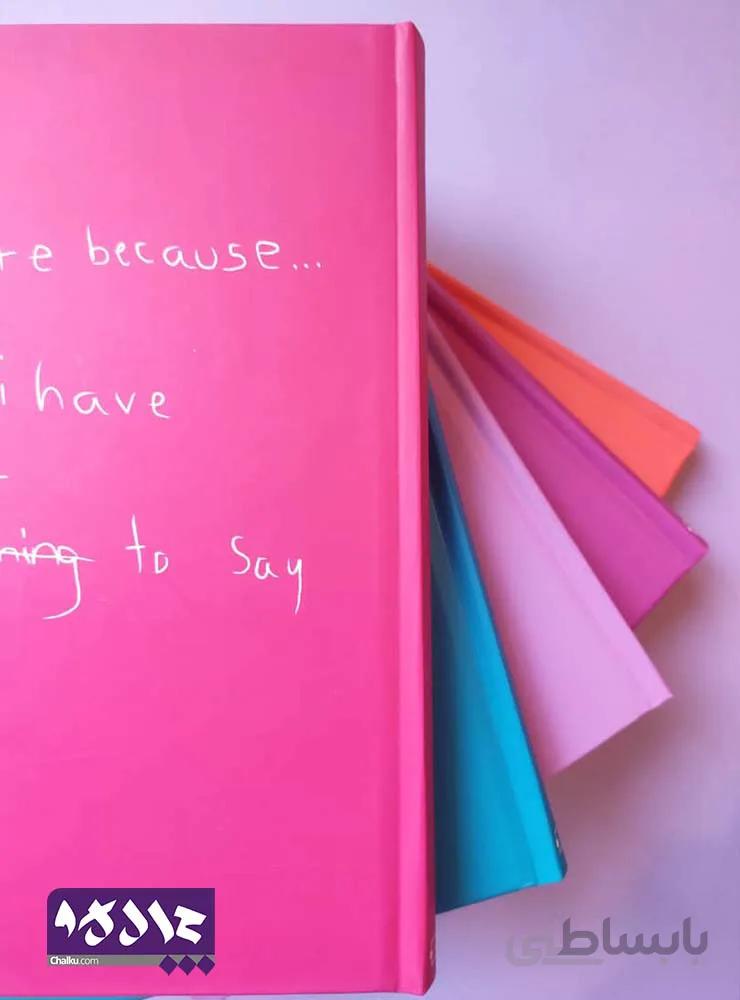 re because...
i have
ning to say
چاله
Chalku.com
بابساطی